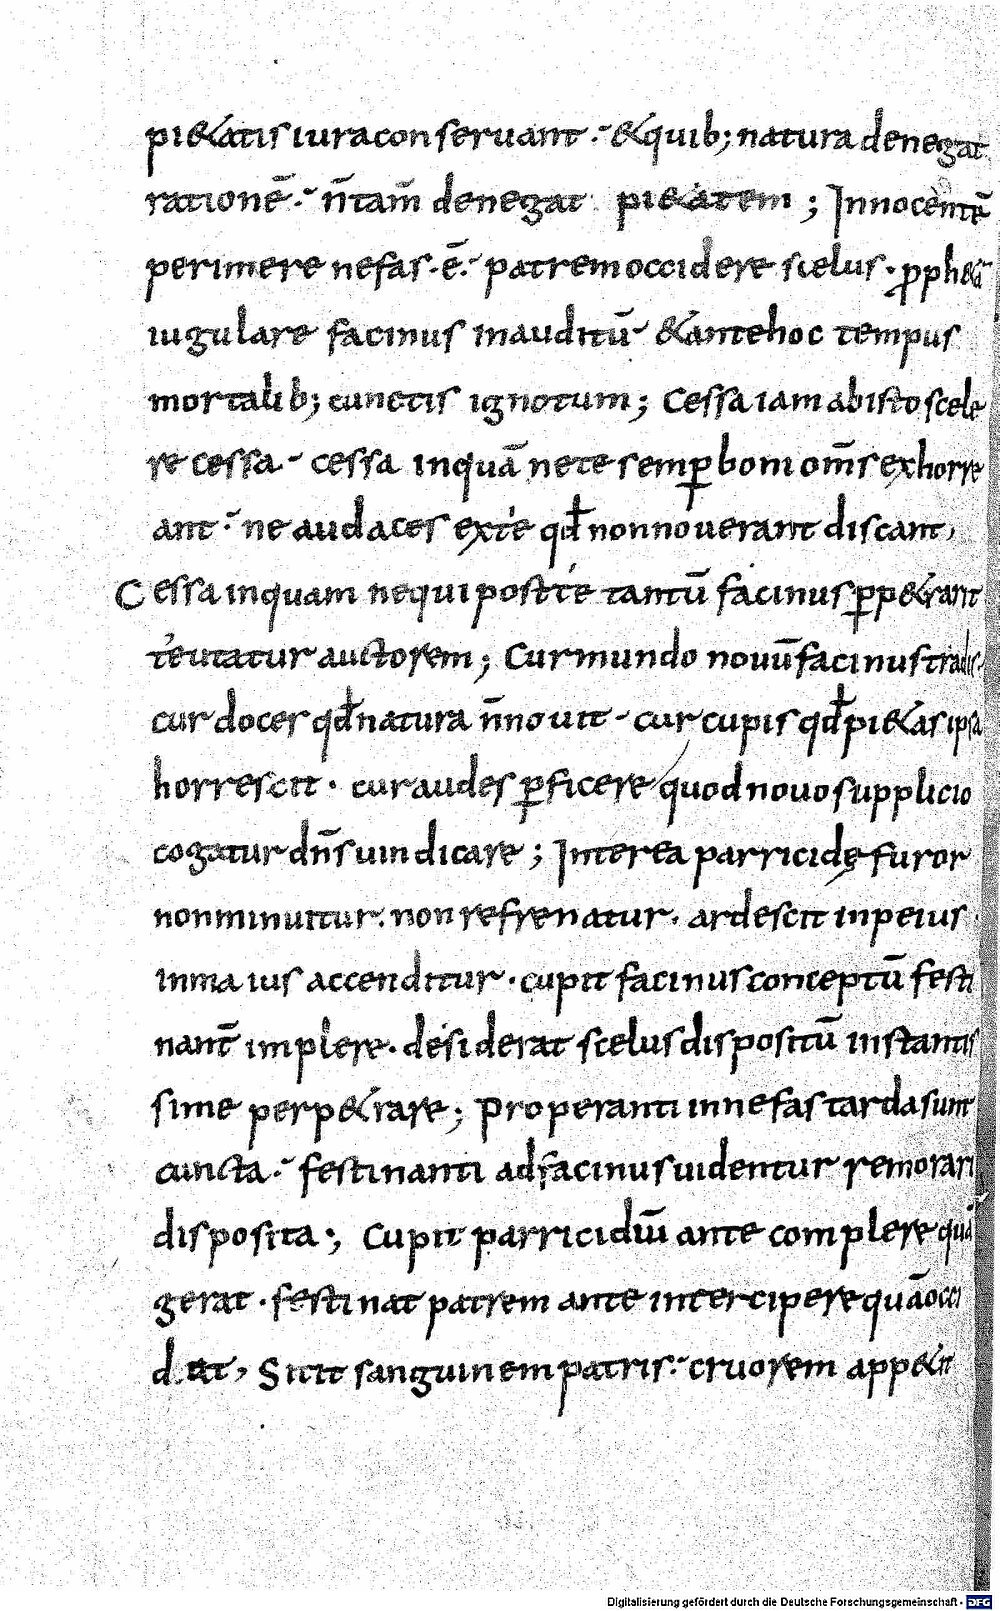 pi&atis iura conseruant .· & quib; natura denegat
rationē .· n̄ tam̄ denegat pi&atem ; Innocentē
perimere nefas · ē .· patrem occidere scelus · p̱ph&ā
iugulare facinus inauditū · & ante hoc tempus
mortalib; cunctis ignotum ; Cessa iam ab isto scele
re cessa · cessa inquā ne te semp̱ boni om̄s exhorre
ant .· ne audaces ex te qđ non nouerant discant ,
Cessa inquam ne qui post te tantū facinus p̱p&rant
te utatur auctorem ; Cur mundo nouū facinus tradis ·
cur doces qđ natura n̄ nouit · cur cupis qđ pi&as ipsa
horrescit · cur audes p̱ficere quod nouo supplicio
cogatur dn̄s uindicare ; Interea parricidę furor
non minuitur . non refrenatur . ardescit in peius ·
in maius accenditur · cupit facinus conceptū festi
nant̄ implere · desiderat scelus dispositū instantis
sime perp&rare ; Properanti in nefas tarda sunt
cuncta .· festinanti ad facinus uidentur remorari
disposita ·, Cupit parricidiū ante complere quā
gerat · festinat patrem ante intercipere quā occi
dat , Sitit sanguinem patris .· cruorem app&it
Digitalisierung gefördert durch die Deutsche Forschungsgemeinschaft · DFG